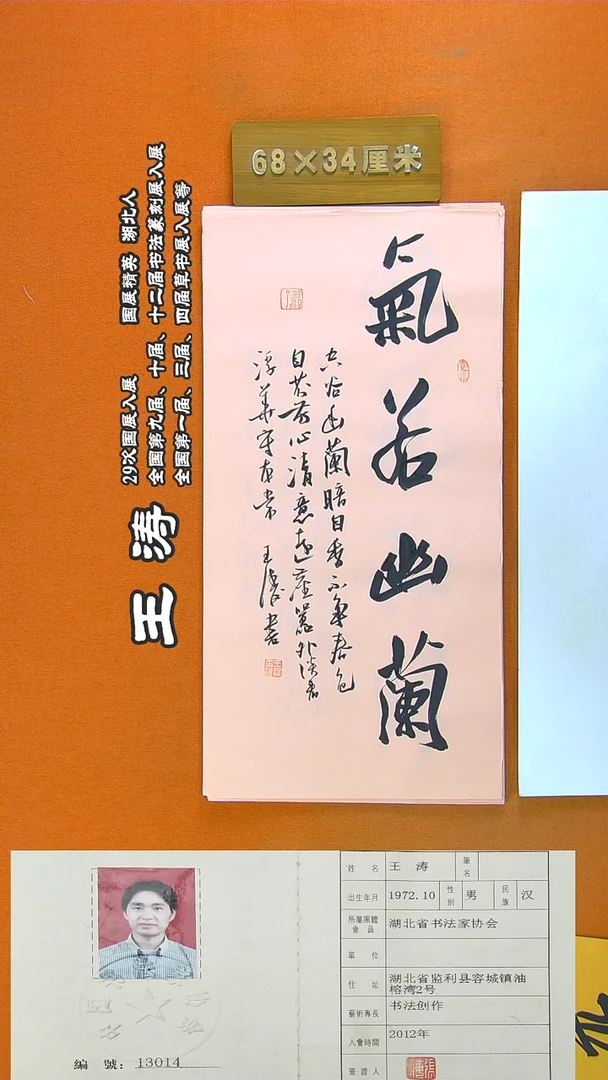 68×34厘米
氣若幽蘭
空谷幽蘭暗自香不爭春色
自芬芳心清意遠塵囂外淡看
浮華守本常 王濤書
王涛
29次国展入展 国展精英 湖北人
全国第九届、十届、十二届书法篆刻展入展
全国第一届、三届、四届草书展入展等
姓名 王 涛 筆名
出生年月 1972.10 性別 男 民族 汉
所屬團體會員 湖北省书法家协会
單位
住址 湖北省监利县容城镇油榕湾2号
藝術專長 书法创作
入會時間 2012年
簽證人
編號：13014